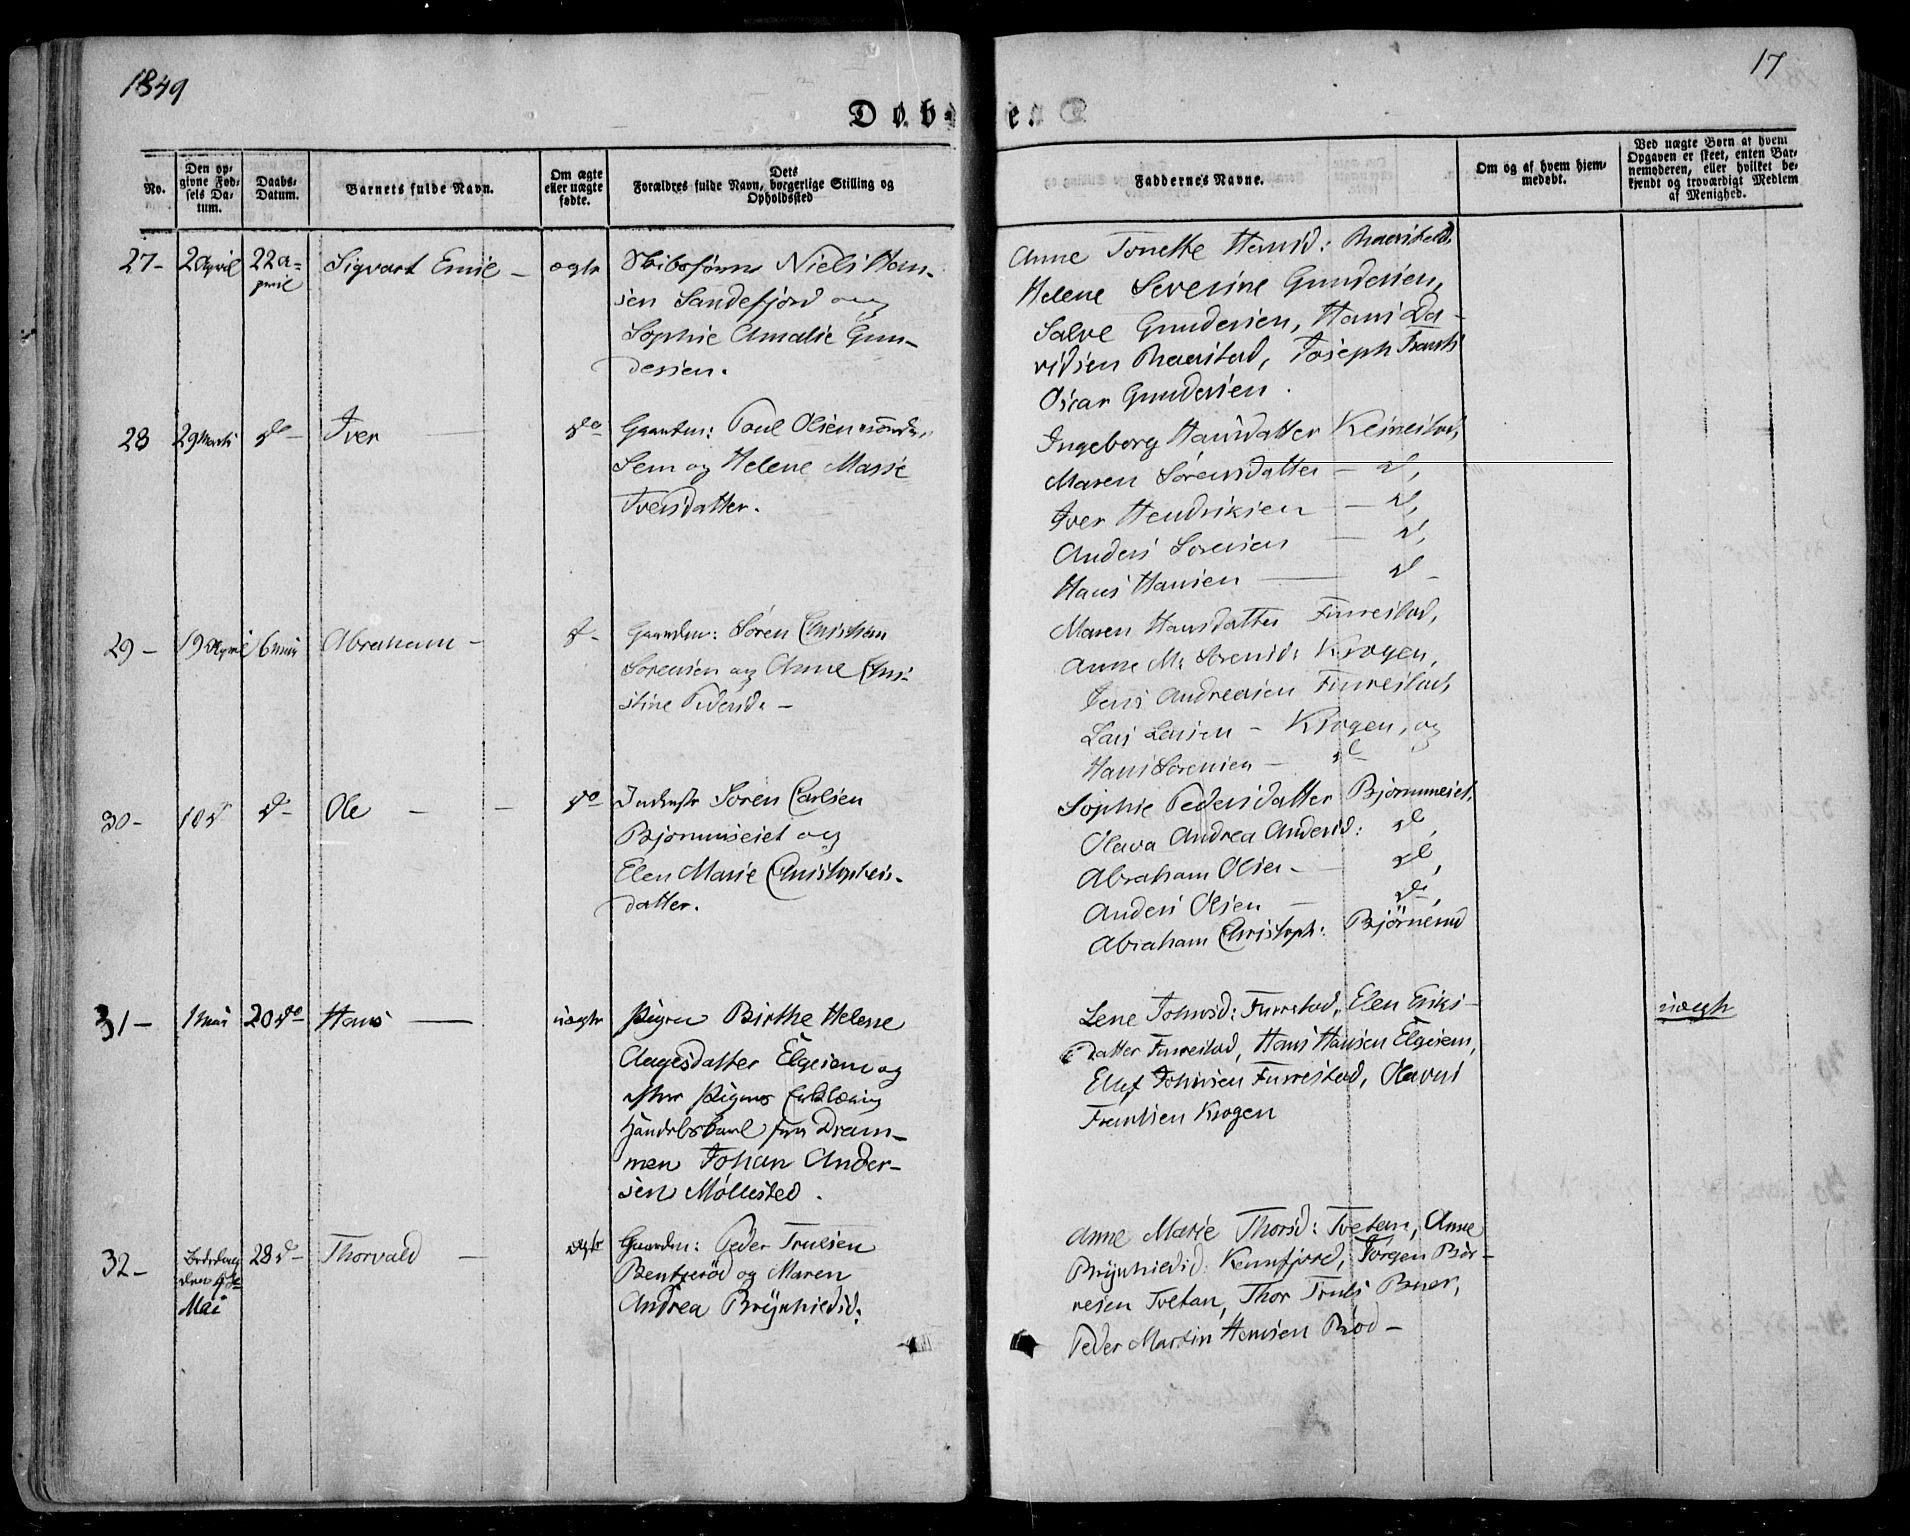 1849
17
Døbte.
No.
Den op-
givne Fød-
sels Da-
tum.
Daabs-
Datum.
Barnets fulde Navn.
Om ægte
eller uægte
fødte.
Dets
Forældres fulde Navn, borgerlige Stilling og
Opholdssted
Faddernes Navne.
Om og af hvem hjem-
medøbt.
Ved uægte Børn at hvem
Opgaven er skeet, enten Bar-
nemoderen, eller hvilket be-
kjendt og troværdigt Medlem
af Menighed.
27- 2 April 22 a-
pril
Sigvart Emil - ægte
Niels Han-
sen Sandefjord og
Sophie Amalie Gun-
dersen.
Anne Tonette Hansd:
Helene Severine Gundersen,
Salve Gundersen, Hans Da-
vidsen Raastad, Joseph Frants
Oscar Gundersen.
28 29 Marts do - Iver do
Gaardm: Poul Olsen
Sem og Helene Marie
Iversdatter.
Ingeborg Hansdatter
Maren Sørensdatter - do,
Iver Hendriksen - do,
Anders Sorensen - do,
Hans Hansen - do -
29- 19 April 6 Mai Abraham - do -
Gaardm: Søren Christian
Sorensen og Anne Chri-
stine Pedersd. -
Maren Hansdatter Furrestad,
Anne M. Sorensd: Krogen,
Jens Andreasen Furrestad,
Lars Larsen - Krogen, og
Hans Sorensen - do
30- 18 do do - Ole - - do
Inderste Søren Carlsen
Bjørnumseiet og
Elen Marie Christophers-
datter.
Sophie Pedersdatter Bjørnumeiet,
Olava Andrea Andersd: do,
Abraham Olsen - do,
Anders Olsen - do,
Abraham Christoph: Bjørnum
31- 1 Mai 20 do - Hans - uægte
Pigen Birthe Helene
Aagesdatter Elgesem og
efter Pigens Erklæring
Handelskarl fra Dram-
men Johan Ander-
sen Møllested.
Lene Johnsd: Furrestad, Elen Eriks-
datter Furrestad, Hans Hansen Elgesem,
Eluf Johnsen Furrestad, Olavus
Frantsen Krogen
uægte
32- Bededag
den 4de
Mai
28 do - Thorvald - ægte
Gaardm: Peder Trulsen
Bentserød og Maren
Andrea Brynhildsd:
Anne Marie Thorsd: Tvetan, Anne
Brynhildsd: Jørgen Bør-
resen Tvetan, Thor Truls Buer,
Peder Martin Hansen Rød-